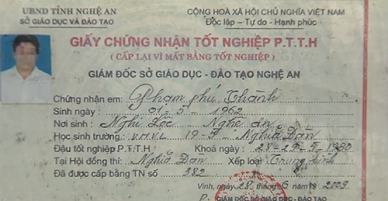 UBND TỈNH NGHỆ AN
SỞ GIÁO DỤC VÀ ĐÀO TẠO
CỘNG HOÀ XÃ HỘI CHỦ NGHĨA VIỆT NAM
Độc lập - Tự do - Hạnh phúc
GIẤY CHỨNG NHẬN TỐT NGHIỆP P.T.T.H
( CẤP LẠI VÌ MẤT BẰNG TỐT NGHIỆP )
GIÁM ĐỐC SỞ GIÁO DỤC - ĐÀO TẠO NGHỆ AN
Chứng nhận em: Phạm phú Thành
Sinh ngày : 01-5-1962
Nơi sinh : Nghi Lộc Nghệ an
Học sinh trường: V.H.V.L 19-5 Nghĩa Đàn
Đậu tốt nghiệp P.T.T.H Khoá ngày : 28-29-5-1980
Tại Hội đồng thi: Nghĩa Đàn Xếp loại: Trung bình
Đã được cấp bằng TN số 382
Vinh, ngày 28 tháng 6 năm 2003
GIÁM ĐỐC SỞ GIÁO DỤC - ĐÀO TẠO